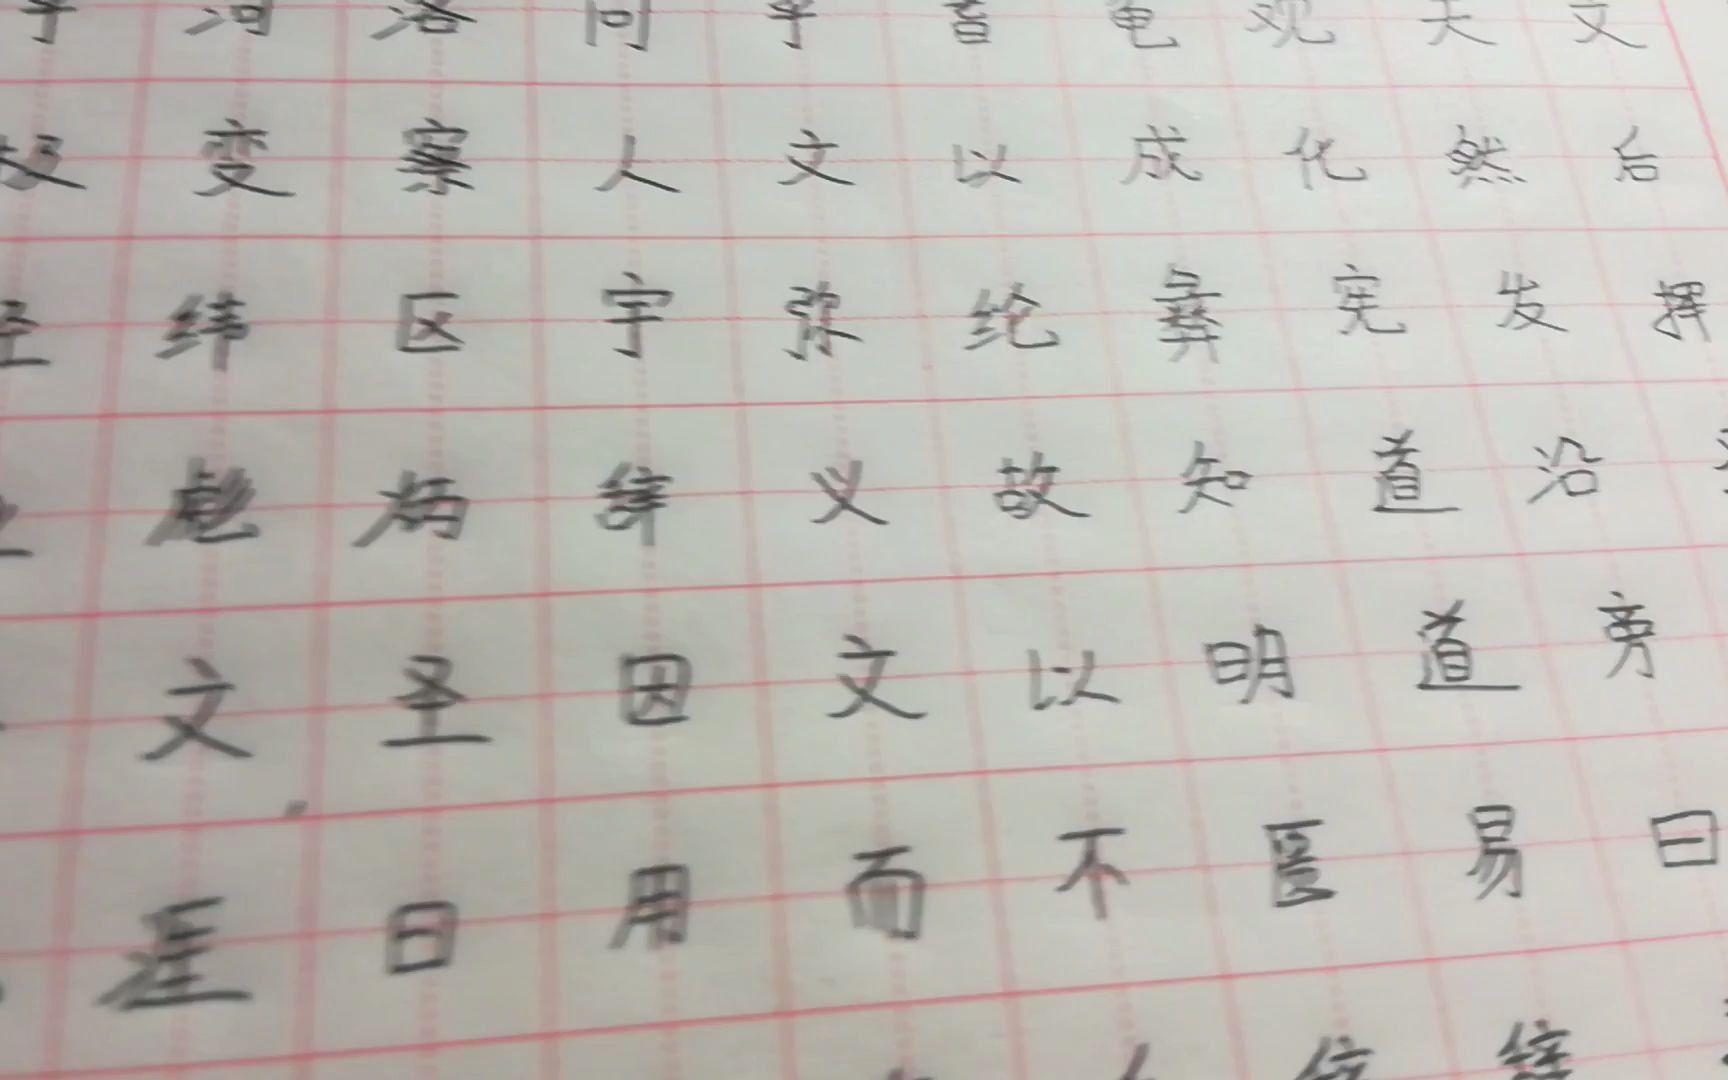 乎河洛问乎蓍龟观天文
极变察人文以成化然后
经纬区宇弥纶彝宪发挥
彪炳辞义故知道沿
文圣因文以明道旁
涯日用而不匮易曰
辞